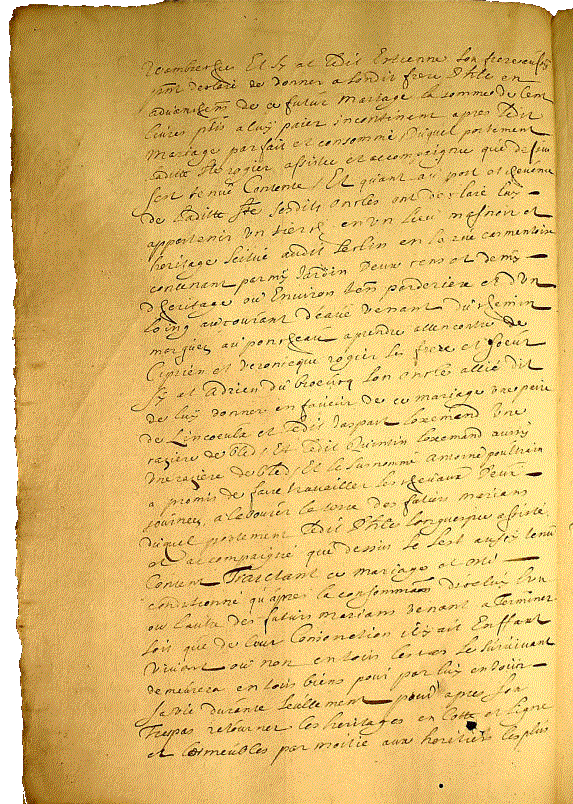 Et sy at ledit Estienne son frere aussy
declaré de donner a sondit frere Phle en
advanchem de ce futur mariage la somme de Cent
livres ptis a luy paier incontinent apres ledit
mariage parfait et consommé, duquel portement
ladite rogier assistee et accompaignie que dessus
sest tenue Contente, Et quant au port et revenu
de laditte sesdits oncles ont declaré luy
appartenir un tierch en un lieu manoir et
heritage scitué audit en le rue
contenant parmy Jardin deux cens et demy
dheritage ou environ ten par derriere et d'un
loing au courant deaue venant du chemin
au ponceau a prendre allencontre de
Ciprien et Veronicque rogier ses frere et soeur
Sy at Adrien du son oncle allié dit
de luy donner en faveur de ce mariage une paire
de Linceulx et ledit Jaspart Loremand une
raziere de bled, Et ledit Quintin Loremand aussy
une raziere de bled, Et le surnommé Antoine poultrain
a promis de faire travailler les chevaux deux
journees, a labourer le terre des futurs marians
duquel portement ledit Phle assisté
et accompaigné que dessus se sest aussy tenu
Content Traictant ce mariage at esté
conditionné quapres la consommaon diceluy lun
ou lautre des futurs marians venant a Terminer
soit que de leur Conionction il y ait Enffant
vivant ou non en tous les cas le Survivant
demeurera en tous biens pour par luy en Jouir
sa vie durante seullement pour apres son
trespas retourner les heritages en Cotte et ligne
et les meubles par moitie aux heritiers les plus